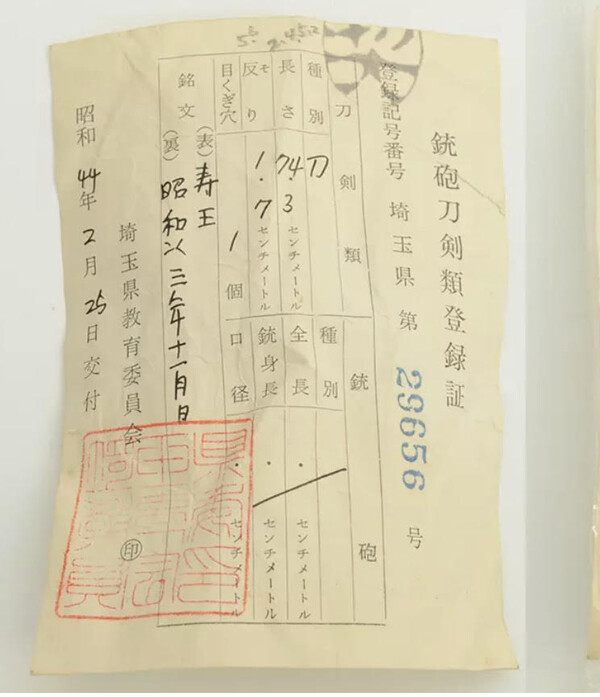 銃砲刀剣類登録証
登録記号番号 埼玉県 第 29656 号
刀剣類 銃砲
種別 刀 種別
長さ 74.3 センチメートル 全長 ・ センチメートル
反り 1.7 センチメートル 銃身長 ・ センチメートル
目くぎ穴 1 個 口径 ・ センチメートル
銘文 (表) 寿王
(裏) 昭和 三年十一月日
埼玉県教育委員会 印
昭和44年2月25日交付